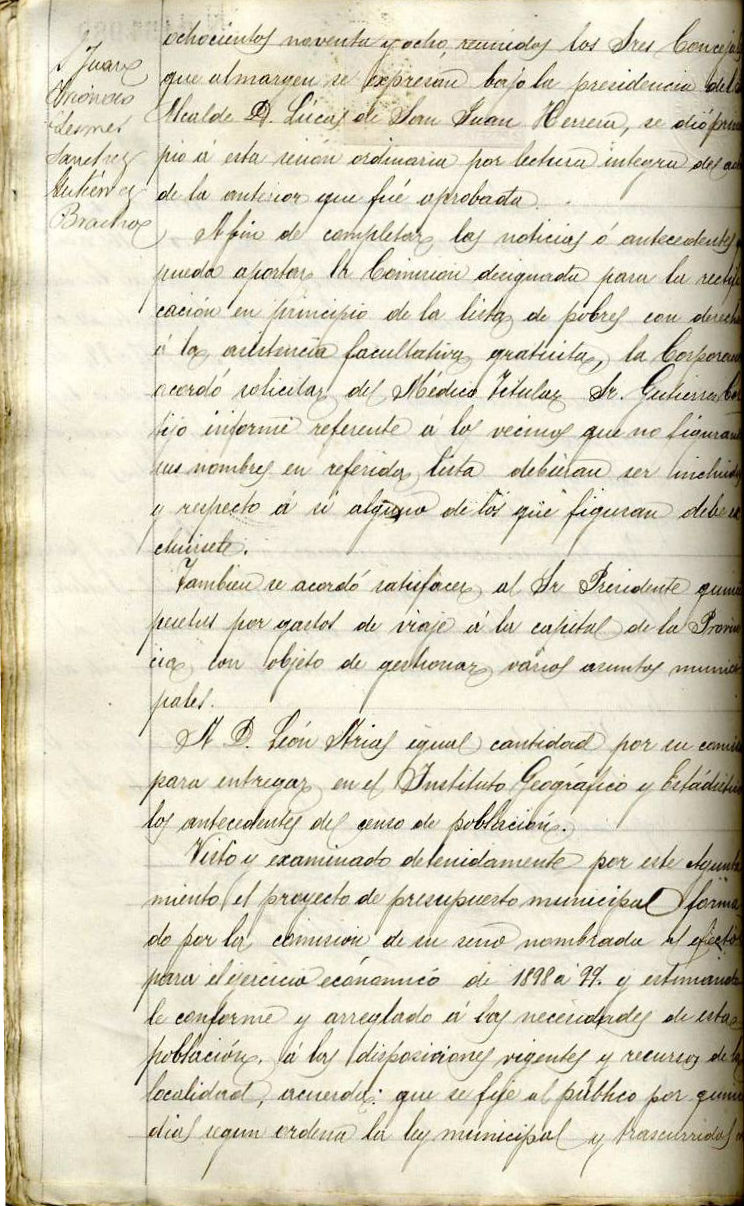 Juan
Lesmes
Sanchez
Gutiérrez
ochocientos noventa y ocho, reunidos los Sres Concejal
que al margen se expresan bajo la presidencia del
Alcalde D. Lúcas de San Juan Herrera, se dió princi
pio á esta sesión ordinaria por lectura integra del ac
de la anterior que fué aprobada.
A fin de completar las noticias ó antecedentes q
pueda aportar la Comision designada para la rectifi
cación en principio de la lista de pobres con derecho
á la asistencia facultativa gratuita, la Corporaci
acordó solicitar del Médico Titular Sr. Gutierrez Cor
tijo informe referente á los vecinos que no figurand
sus nombres en referida lista debieran ser incluidos
y respecto á si alguno de los que figuran debe es
cluirsele.
Tambien se acordó satisfacer al Sr Presidente quince
pesetas por gastos de viaje á la capital de la Provin
cia con objeto de gestionar varios asuntos munici
pales.
A D. León Arias igual cantidad por su comisi
para entregar en el Instituto Geográfico y Estadístico
los antecedentes del censo de población.
Visto y examinado detenidamente por este Ayunta
miento el proyecto de presupuesto municipal forma
do por la comision de su seno nombrada al efecto
para el ejercicio económico de 1898 á 99. y estimando
le conforme y arreglado á las necesidades de esta
población, á las disposiciones vigentes y recursos de la
localidad, acuerda: que se fije al público por quince
dias segun ordena la ley municipal y trascurridos